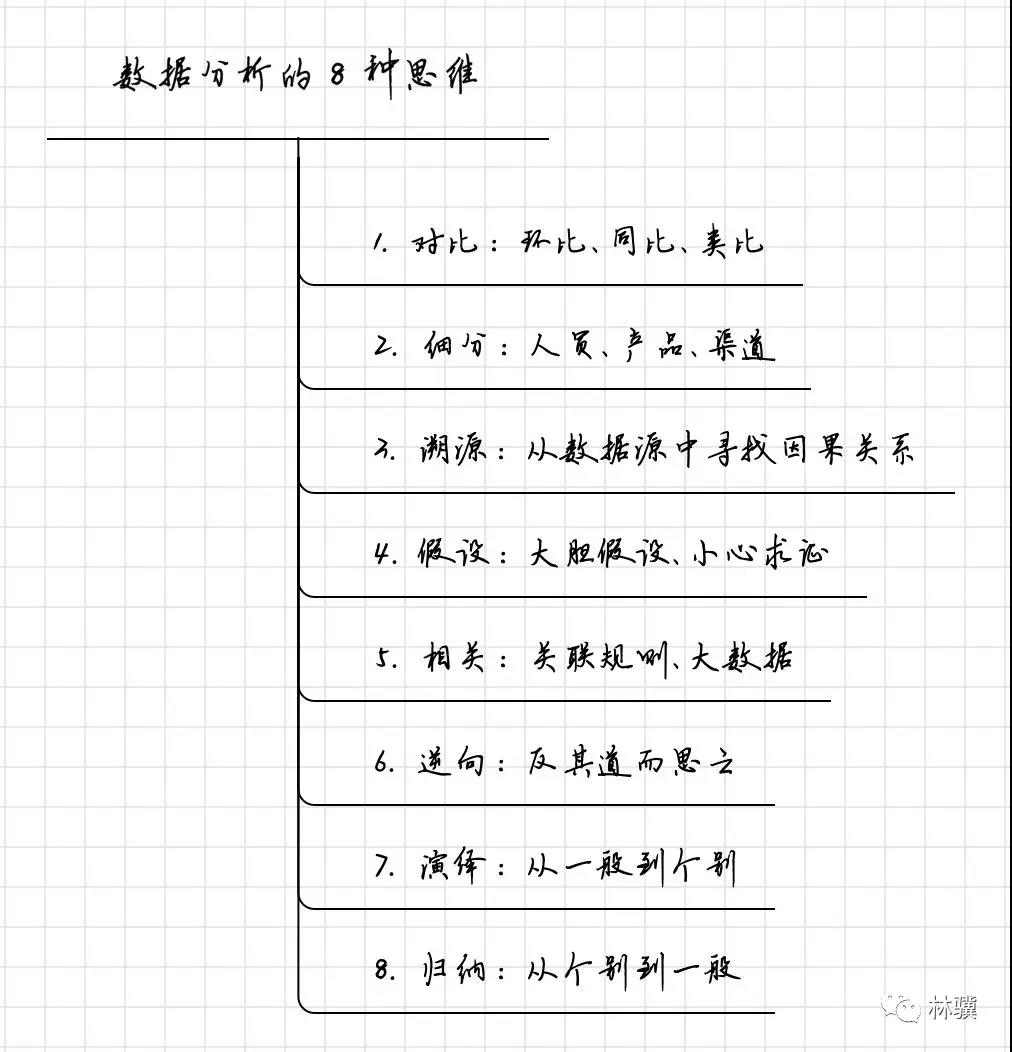 数据分析的8种思维
1. 对比：环比、同比、类比
2. 细分：人员、产品、渠道
3. 溯源：从数据源中寻找因果关系
4. 假设：大胆假设、小心求证
5. 相关：关联规则、大数据
6. 逆向：反其道而思之
7. 演绎：从一般到个别
8. 归纳：从个别到一般
林骥